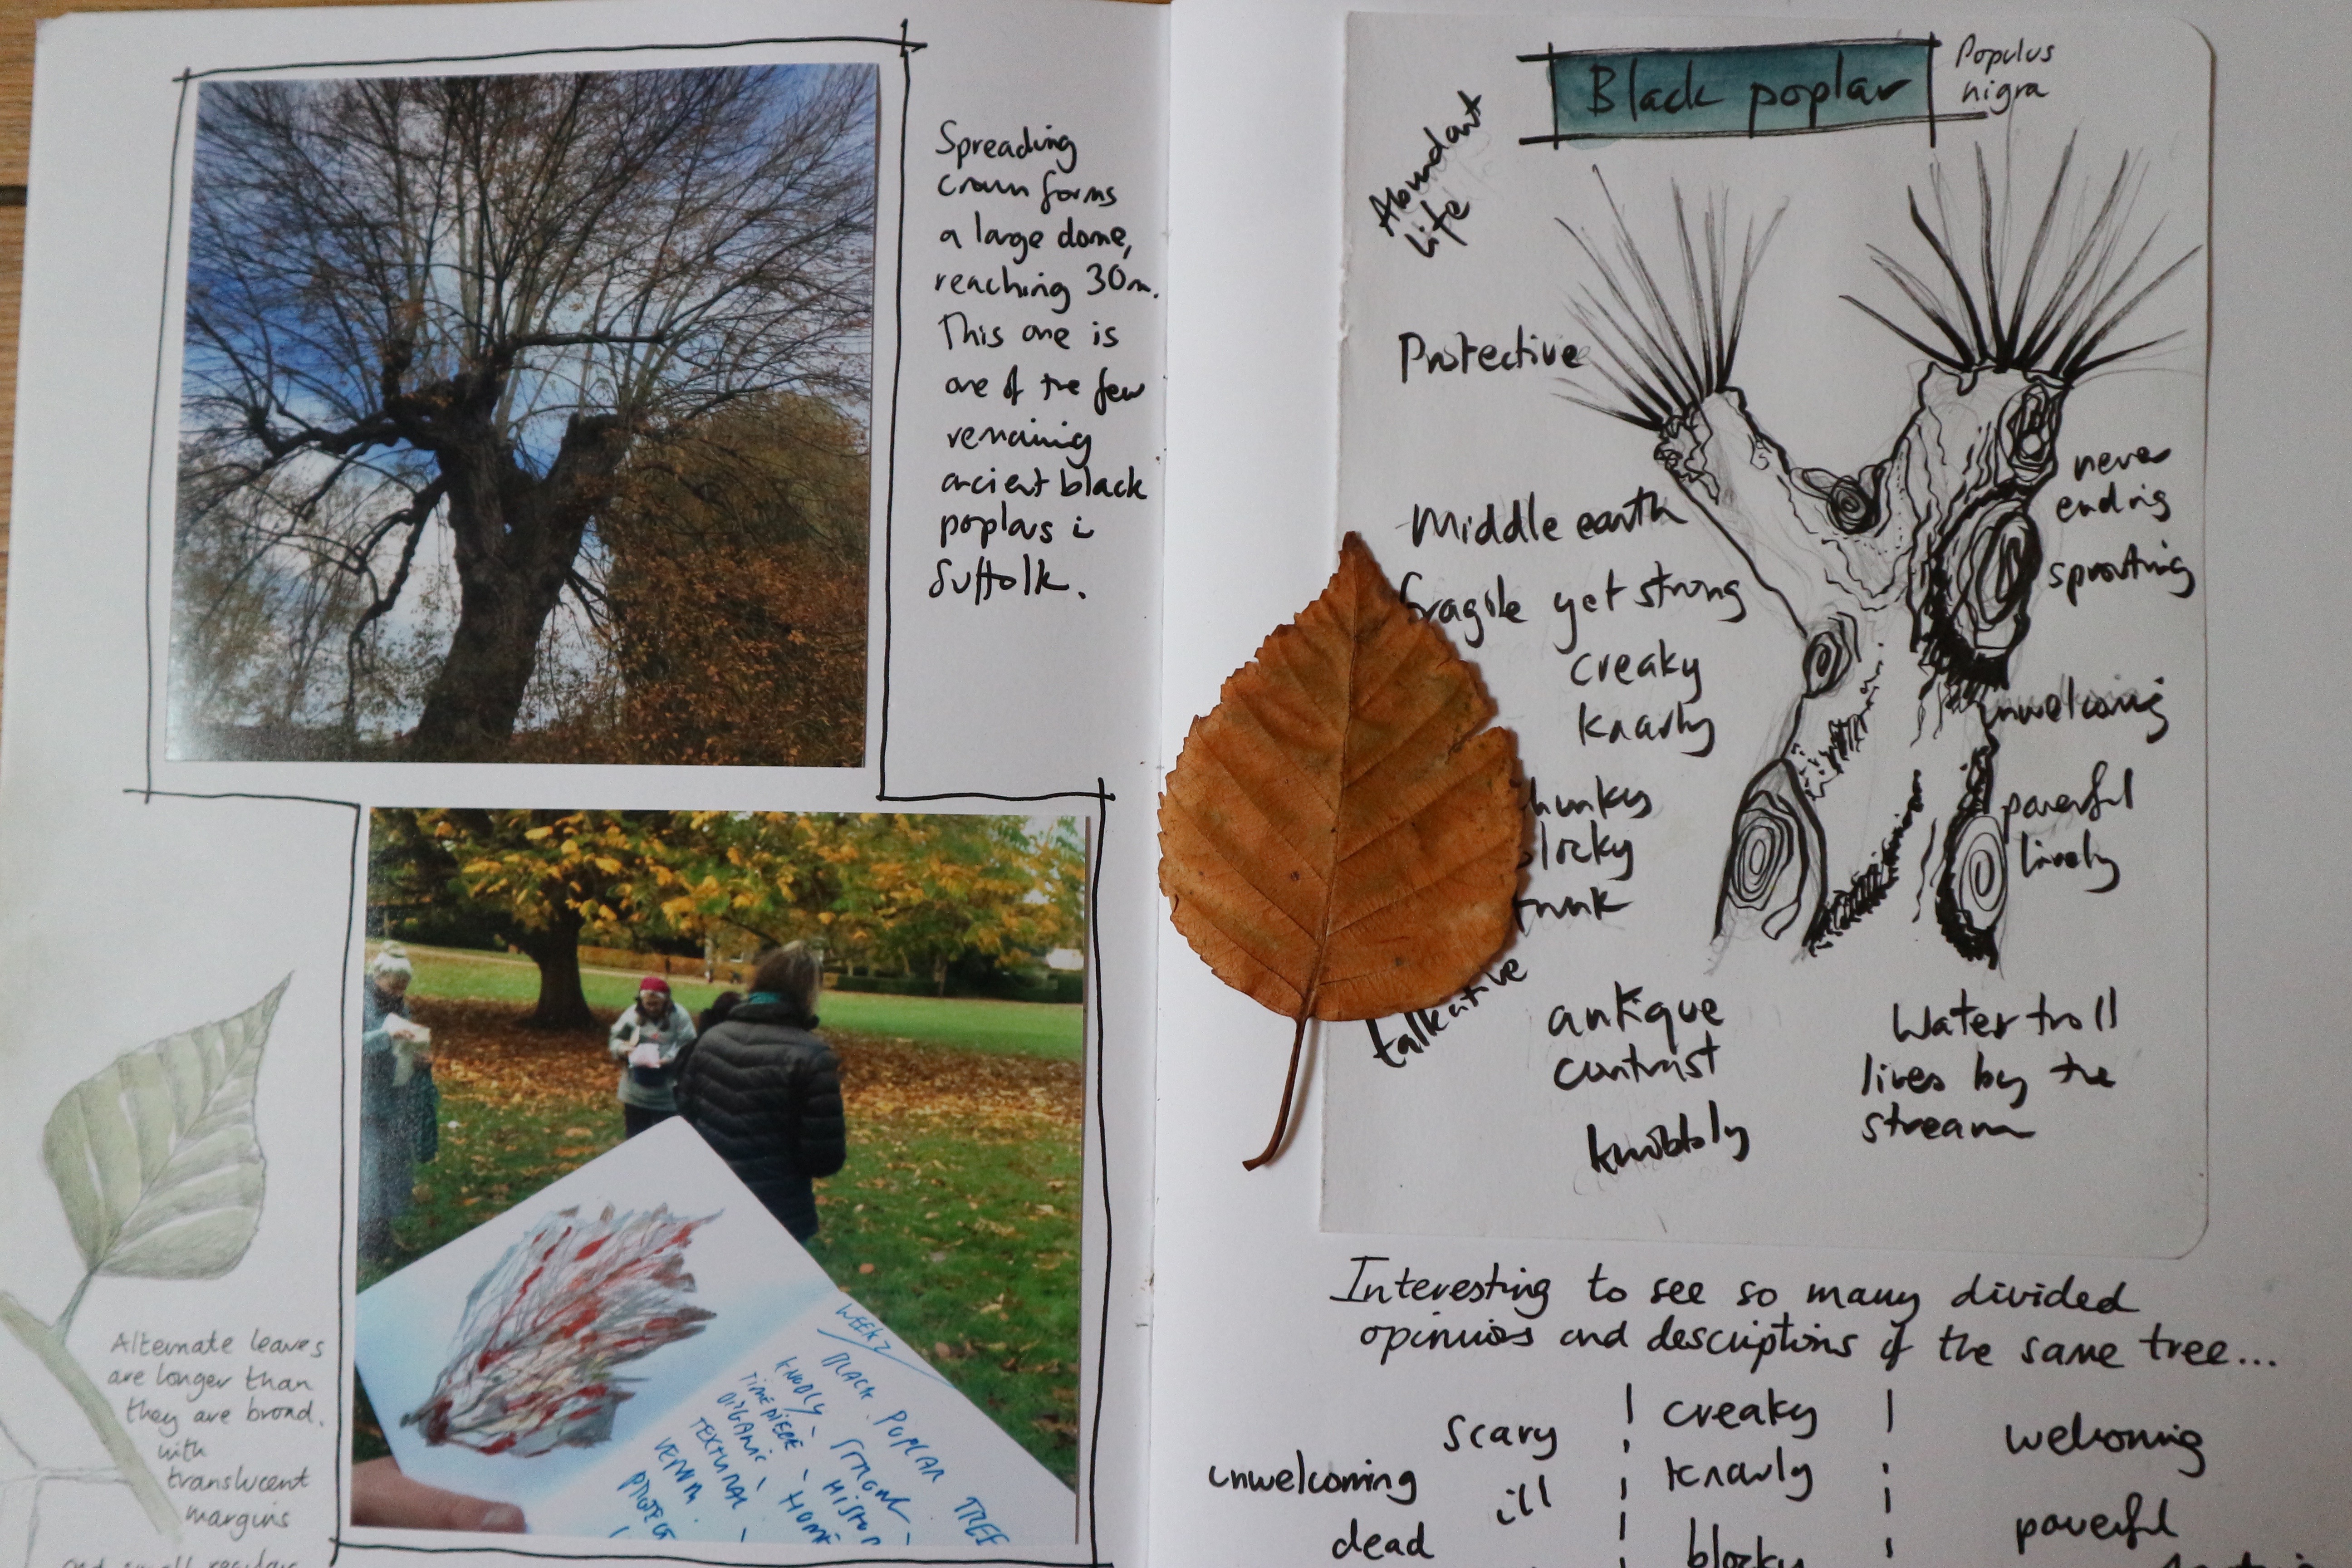 Spreading
crown forms
a large dome,
reaching 30m.
This one is
one of the few
remaining
ancient black
poplars i
Suffolk.
Alternate leaves
are longer than
they are broad.
with
translucent
margins
WEEK 2
BLACK POPLAR TREE
KNOBLY - STRONG -
TIMEPIECE - HISTOR
ORGANIC - HOME
TEXTURAL -
PROTECT
Black poplar
Populus
nigra
Abundant
life
Protective
Middle earth
fragile yet strong
creaky
knarly
hunky
locky
trunk
talkative
antique
contrast
knobbly
never
ending
sprouting
unwelcoming
powerful
lively
Water troll
lives by the
stream
Interesting to see so many divided
opinions and descriptions of the same tree...
scary
unwelcoming
ill
dead
creaky
knarly
blocky
welcoming
powerful